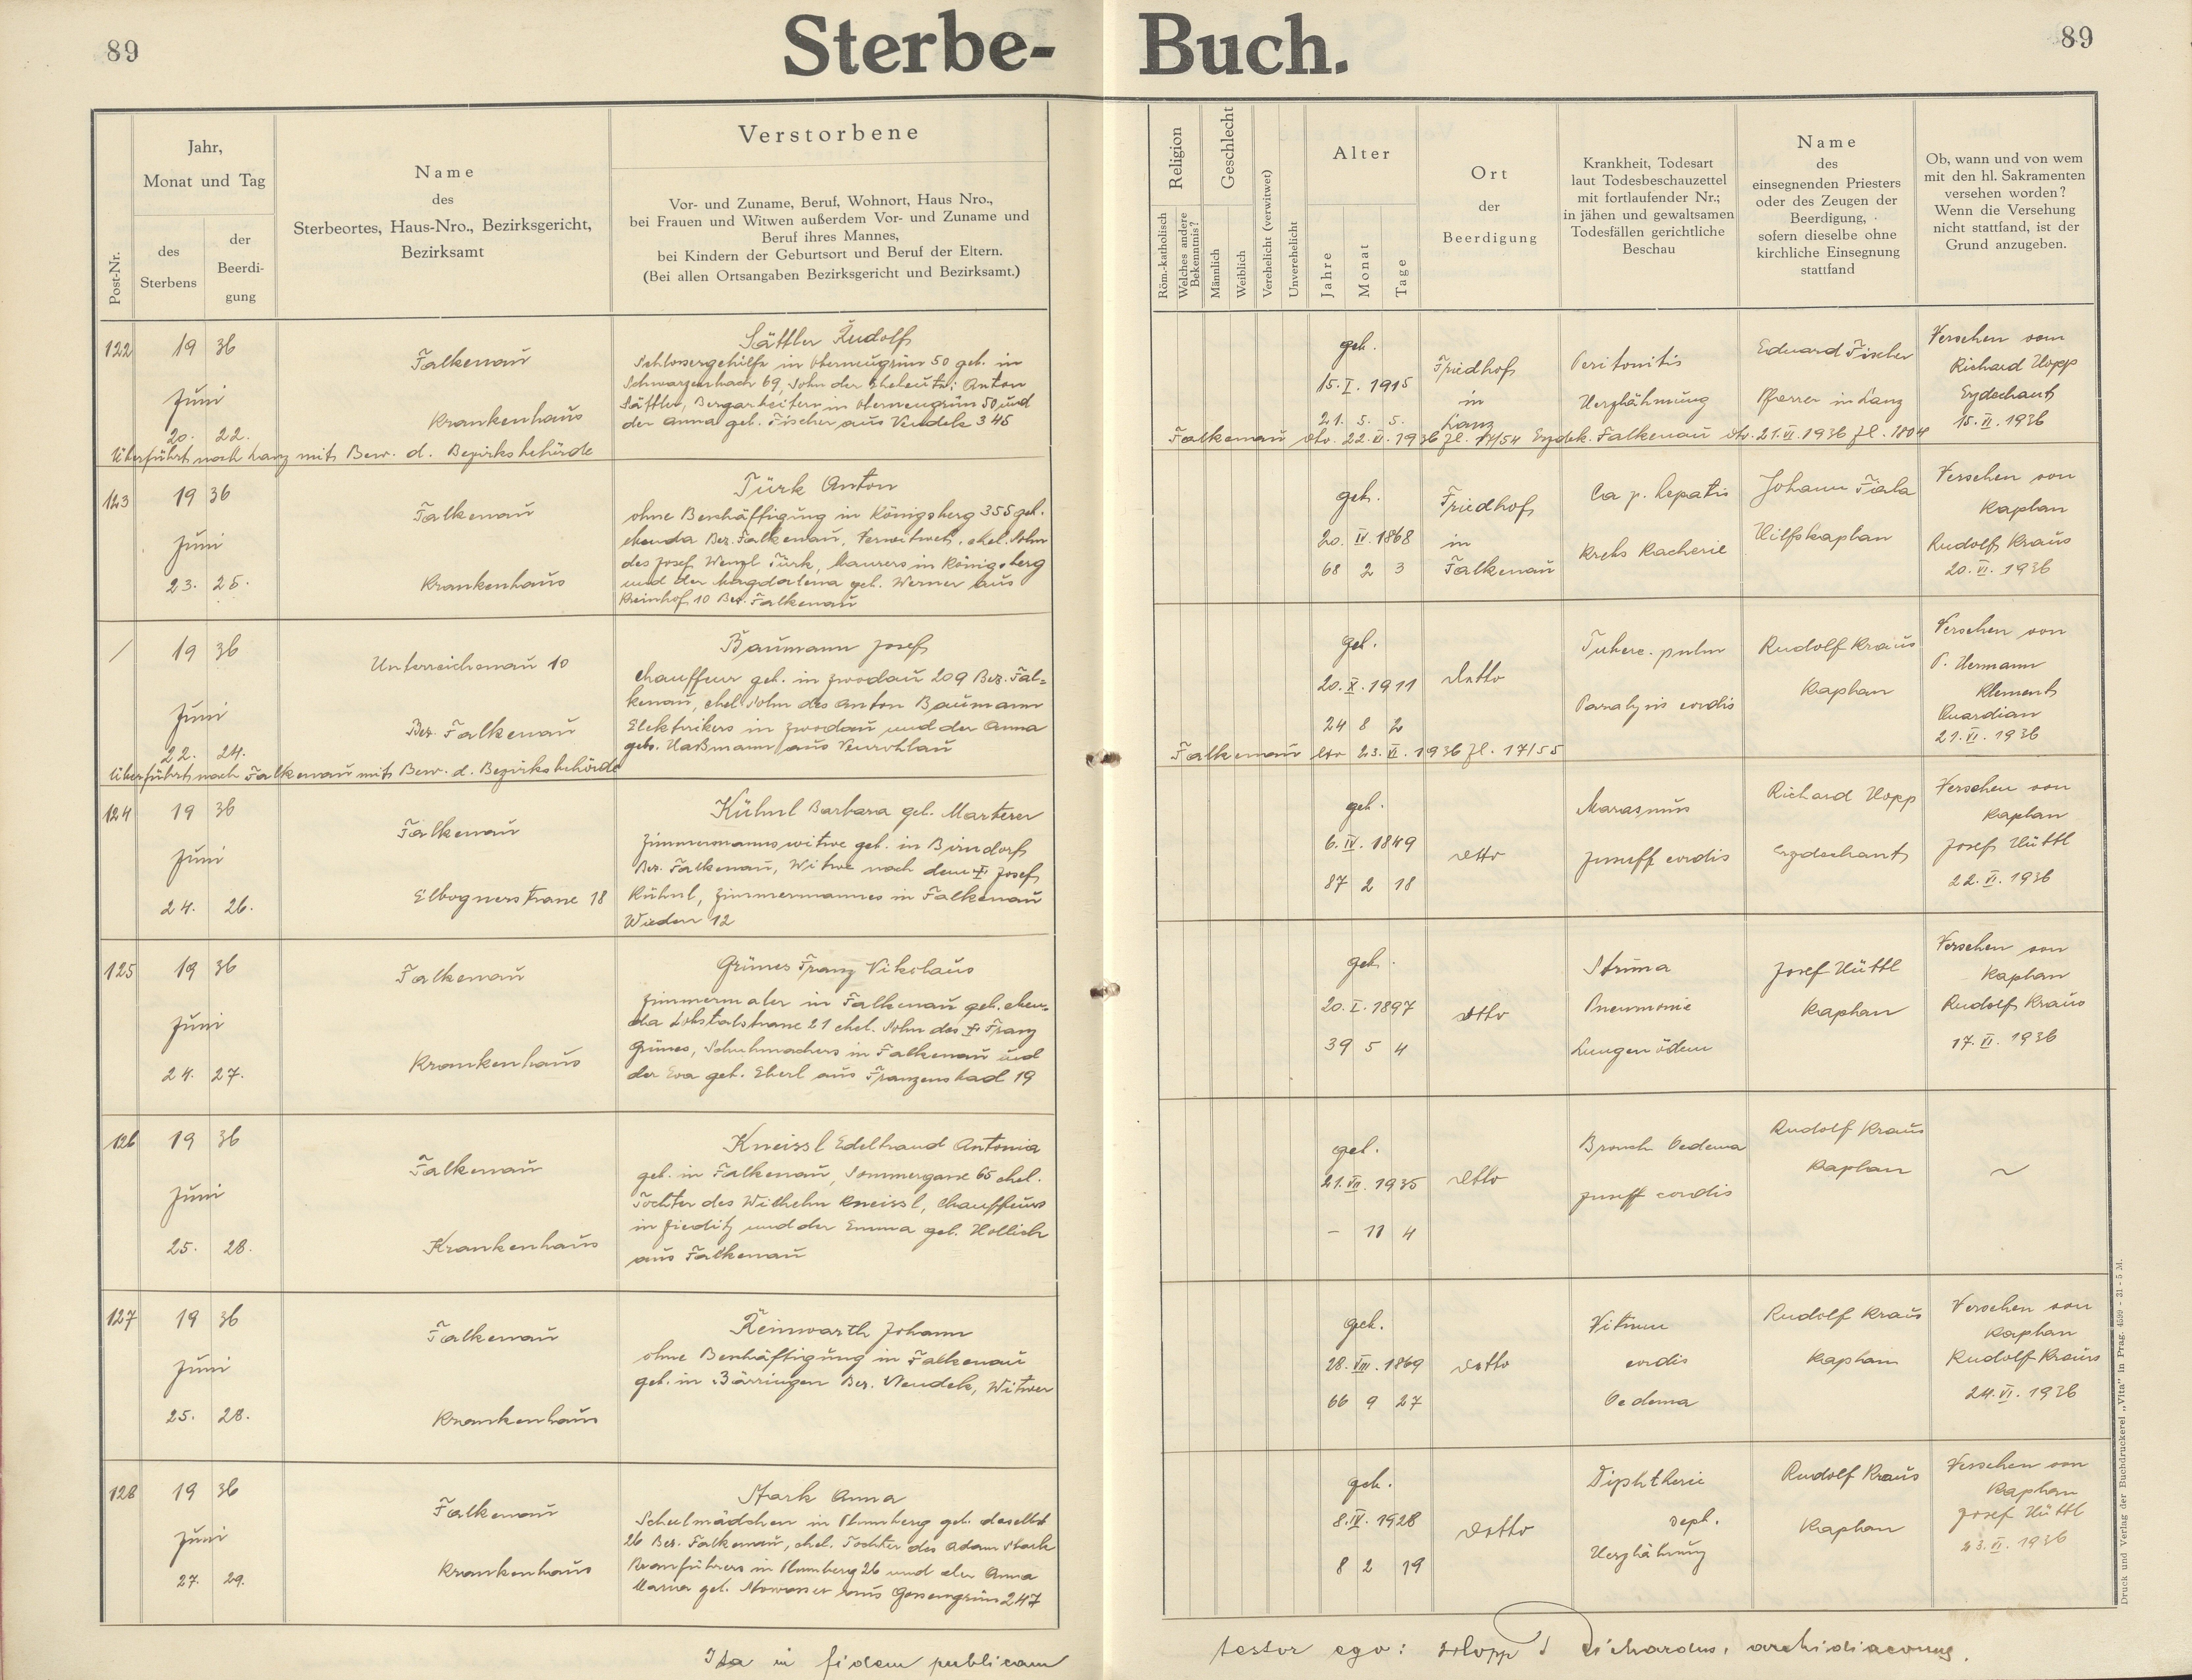 89
Sterbe-
Buch.
89
Post-Nr.
Jahr,
Monat und Tag
des
Sterbens
der
Beerdi-
gung
Name
des
Sterbeortes, Haus-Nro., Bezirksgericht,
Bezirksamt
Verstorbene
Vor- und Zuname, Beruf, Wohnort, Haus Nro.,
bei Frauen und Witwen außerdem Vor- und Zuname und
Beruf ihres Mannes,
bei Kindern der Geburtsort und Beruf der Eltern.
(Bei allen Ortsangaben Bezirksgericht und Bezirksamt.)
Religion
Röm.-katholisch
Welches andere
Bekenntnis?
Geschlecht
Männlich
Weiblich
Verehelicht (verwitwet)
Unverehelicht
Alter
Jahre
Monat
Tage
Ort
der
Beerdigung
Krankheit, Todesart
laut Todesbeschauzettel
mit fortlaufender Nr.;
in jähen und gewaltsamen
Todesfällen gerichtliche
Beschau
Name
des
einsegnenden Priesters
oder des Zeugen der
Beerdigung,
sofern dieselbe ohne
kirchliche Einsegnung
stattfand
Ob, wann und von wem
mit den hl. Sakramenten
versehen worden?
Wenn die Versehung
nicht stattfand, ist der
Grund anzugeben.
122
19 36
Juni
20. 22.
Falkenau
Krankenhaus
Sättler Rudolf
Schlossergehilfe in Oberneugrün 50 geb. in
Schwarzenbach 69, Sohn der Eheleute: Anton
Sättler, Bergarbeiters in Oberneugrün 50 und
der Anna geb. Fischer aus Neudek 345
geb.
15. I. 1915
21. 5. 5.
Friedhof
in
Lanz
Peritonitis
Herzlähmung
Eduard Fischer
Pfarrer in Lanz
Versehen von
Richard Hopp
Erzdechant
15. VI. 1936
Überführt nach Lanz mit Bew. d. Bezirksbehörde
Falkenau dto. 22. VI. 1936 Zl. 17/54 Erzdek. Falkenau dto. 21. VI. 1936 Zl. 1804
123
19 36
Juni
23. 25.
Falkenau
Krankenhaus
Türk Anton
ohne Beschäftigung in Königsberg 355 geb.
ebenda Bez. Falkenau, Verwitwet, ehel. Sohn
des Josef Wenzl Türk, Maurers in Königsberg
und der Magdalena geb. Werner aus
Reinhof 10 Bez. Falkenau
geb.
20. IV. 1868
68 2 3
Friedhof
in
Falkenau
Ca p. hepatis
Krebs Kacherie
Johann Fiala
Hilfskaplan
Versehen von
Kaplan
Rudolf Kraus
20. VI. 1936
/
19 36
Juni
22. 24.
Unterreichenau 10
Bez. Falkenau
Baumann Josef
Chauffeur geb. in Zwodau 209 Bez. Fal=
kenau, ehel. Sohn des Anton Baumann
Elektrikers in Zwodau und der Anna
geb. Haßmann aus Neurohlau
geb.
20. X. 1911
24 8 2
Detto
Tuberc. pulm
Paralysis cordis
Rudolf Kraus
Kaplan
Versehen von
P. Hermann
Klement
Quardian
21. VI. 1936
Überführt nach Falkenau mit Bew. d. Bezirksbehörde
Falkenau dto 23. VI. 1936 Zl. 17/55
124
19 36
Juni
24. 26.
Falkenau
Elbognerstrasse 18
Kühnl Barbara geb. Marterer
Zimmermannswitwe geb. in Birndorf
Bez. Falkenau, Witwe nach dem † Josef
Kühnl, Zimmermannes in Falkenau
Wieden 12
geb.
6. IV. 1849
87 2 18
detto
Marasmus
Insuff cordis
Richard Hopp
Erzdechant
Versehen von
Kaplan
Josef Hüttl
22. VI. 1936
125
19 36
Juni
24. 27.
Falkenau
Krankenhaus
Grünes Franz Nikolaus
Zimmermaler in Falkenau geb. eben-
da Lobstalstrasse 21 ehel. Sohn des † Franz
Grünes, Schuhmachers in Falkenau und
der Eva geb. Eberl aus Franzensbad 19
geb.
20. I. 1897
39 5 4
detto
Struma
Pneumonie
Lungenödem
Josef Hüttl
Kaplan
Versehen von
Kaplan
Rudolf Kraus
17. VI. 1936
126
19 36
Juni
25. 28.
Falkenau
Krankenhaus
Kneissl Edeltraud Antonia
geb. in Falkenau, Sommergasse 65 ehel.
Tochter des Wilhelm Kneissl, Chauffeurs
in Zieditz und der Emma geb. Hollich
aus Falkenau
geb.
21. VII. 1935
- 11 4
detto
Bronch Oedema
Insuff cordis
Rudolf Kraus
Kaplan
~
127
19 36
Juni
25. 28.
Falkenau
Krankenhaus
Reinwarth Johann
ohne Beschäftigung in Falkenau
geb. in Bärringen Bez. Neudek, Witwer
geb.
28. VIII. 1869
66 9 27
detto
Vitium
cordis
Oedema
Rudolf Kraus
Kaplan
Versehen von
Kaplan
Rudolf Kraus
24. VI. 1936
128
19 36
Juni
27. 29.
Falkenau
Krankenhaus
Stark Anna
Schulmädchen in Plumberg geb. daselbst
26 Bez. Falkenau, ehel. Tochter des Adam Stark
Kranführers in Plumberg 26 und der Anna
Maria geb. Nowasser aus Gossengrün 247
geb.
8. IV. 1928
8 2 19
Detto
Diphtherie
sept.
Herzlähmung
Rudolf Kraus
Kaplan
Versehen von
Kaplan
Josef Hüttl
23. VI. 1936
Ita in fidem publicam
testor ego: Hopp Richardus, archidiaconus.
Druck und Verlag der Buchdruckerei „Vita" in Prag. 4599 - 31 - 5 M.